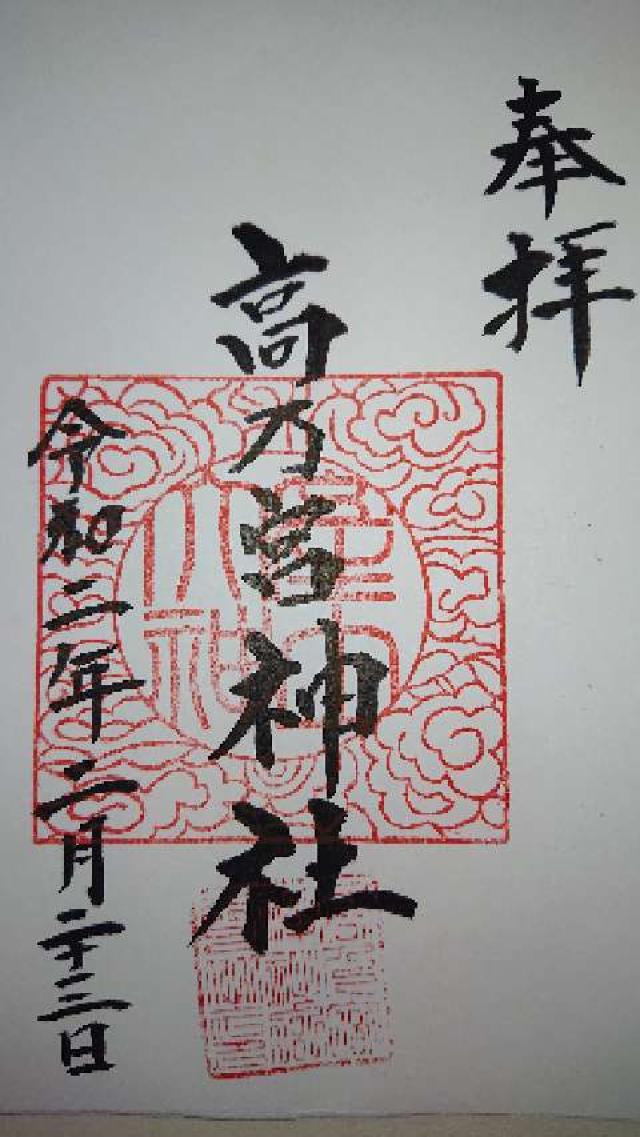 奉拝
高乃宮神社
令和二年二月二十三日